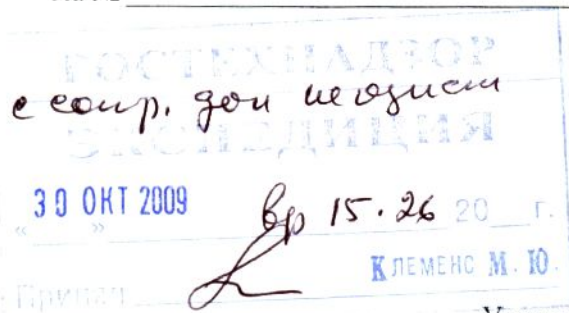 РОСТЕХНАДЗОР
с сопр. дои
ЭКСПЕДИЦИЯ
30 ОКТ 2009 вр 15.26 20__г.
КЛЕМЕНС М. Ю.
Принял